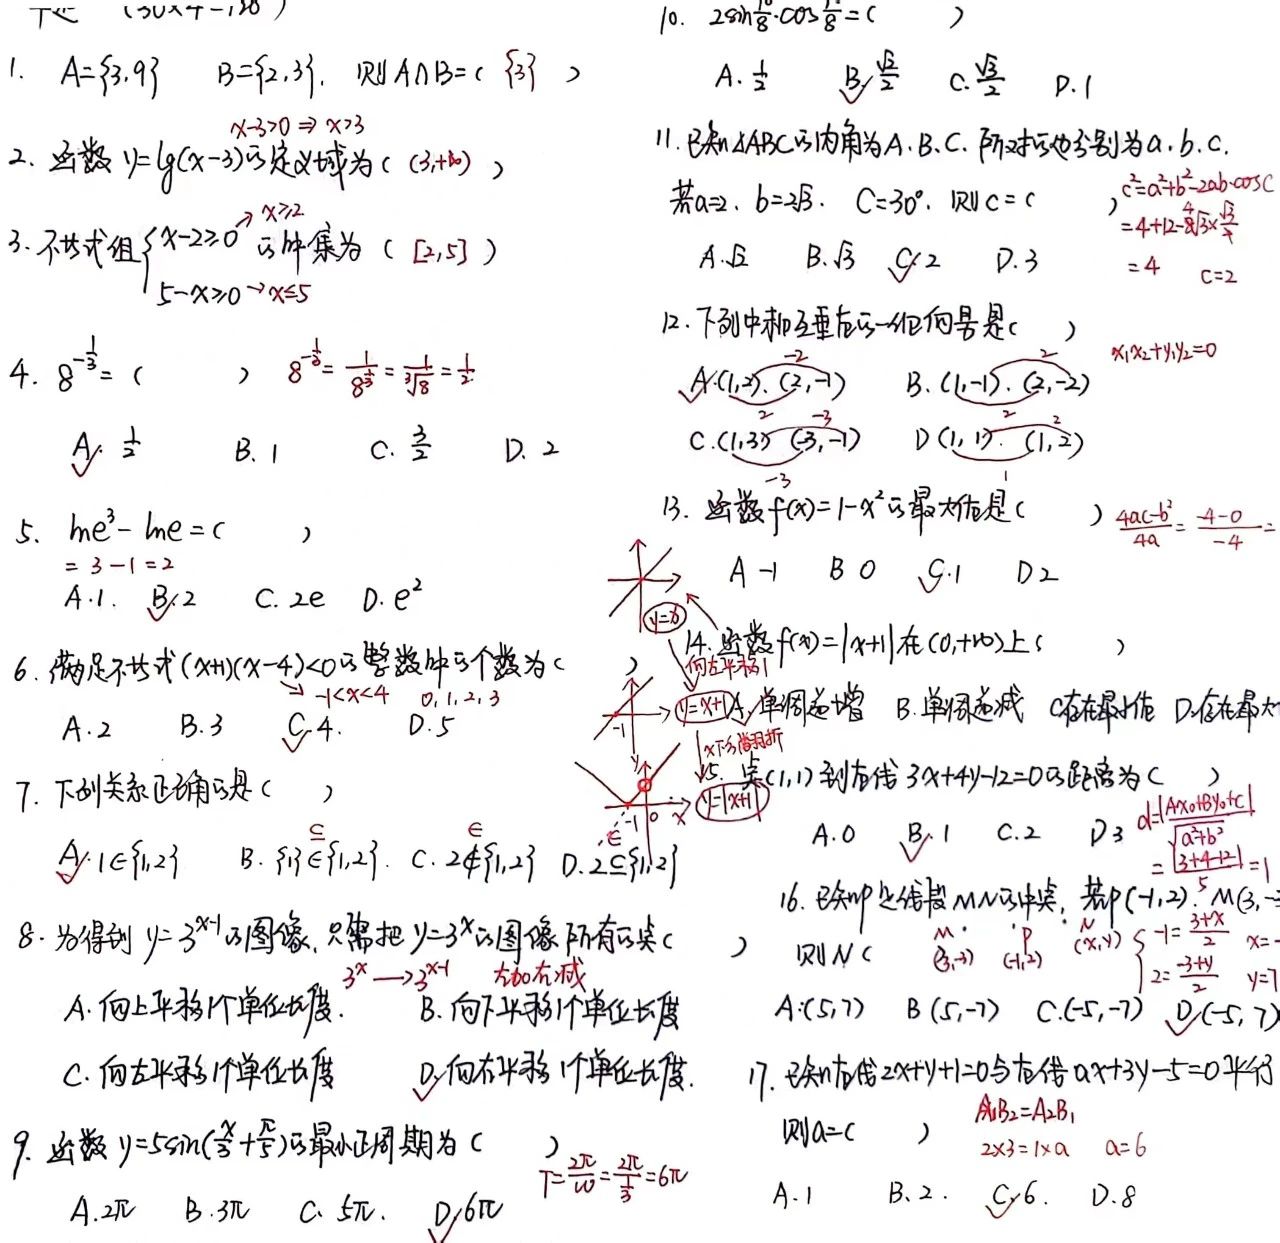 (30×4=120)
1. A={3,9} B={2,3}, 则A∩B=( {3} )
x-3>0 ⇒ x>3
2. 函数 y=lg(x-3)的定义域为( (3,+∞) )
3. 不等式组{x-2≥0 → x≥2 的解集为 ( [2,5] )
5-x≥0 → x≤5
4. 8^{-1/3} = ( ) 8^{-1/3} = 1/8^{1/3} = 1/∛8 = 1/2
A. 1/2 B. 1 C. 3/2 D. 2
5. lne³-lne=( )
=3-1=2
A.1. B.2 C. 2e D. e²
6. 满足不等式(x+1)(x-4)<0的整数解的个数为( )
→ -1<x<4 0,1,2,3
A.2 B.3 C.4. D.5
7. 下列关系正确的是( )
⊆ ∈ ∈
A. 1∈{1,2} B. {1}∈{1,2}. C. 2∉{1,2} D. 2⊆{1,2}
8. 为得到 y=3^{x-1}的图像, 只需把 y=3^x的图像所有的点( )
3^x → 3^{x-1} 左加右减
A. 向上平移1个单位长度. B. 向下平移1个单位长度
C. 向左平移1个单位长度 D. 向右平移1个单位长度.
9. 函数 y=5sin(x/3+π/5)的最小正周期为( )
T=2π/ω=2π/(1/3)=6π
A.2π B.3π C. 5π. D.6π
10. 2sinπ/8·cosπ/8=( )
A. 1/2 B. √2/2 C. √3/2 D. 1
11. 已知△ABC的内角为A.B.C. 所对的边分别为a.b.c.
若a=2. b=2√3. C=30°. 则c=( )
c²=a²+b²-2ab·cosC
=4+12-8√3×√3/2
=4 c=2
A.√2 B.√3 C.2 D.3
12. 下列中相互垂直的一组向量是( )
x₁x₂+y₁y₂=0
-2 2
A.(1,2). (2,-1) B. (1,-1). (2,-2)
2 -3 2 2
C.(1,3) (-3,-1) D (1,1). (1,2)
-3 1
13. 函数 f(x)=1-x²的最大值是( )
4ac-b²/4a = -4-0/-4 =
A -1 B 0 C.1 D 2
y=x
14. 函数 f(x)=|x+1|在(0,+∞)上( )
向左平移1
y=x+1
-1
A. 单调递增 B. 单调递减 C存在最小值 D.存在最大
y=|x+1|
-1 0 x
15. 点(1,1)到直线 3x+4y-12=0的距离为( )
d=|Ax₀+By₀+C|/√a²+b²
=|3+4-12|/5=1
A.0 B.1 C.2 D 3
16. 已知P是线段MN的中点, 若P(-1,2). M(3,-
则N( )
M P N
(3,-3) (-1,2) (x,y)
{-1=3+x/2 x=-
2=-3+y/2 y=7
A:(5,7) B (5,-7) C.(-5,-7) D.(-5,7)
17. 已知直线2x+y+1=0与直线ax+3y-5=0平行
则a=( )
A₁B₂=A₂B₁
2×3=1×a a=6
A.1 B.2. C.6. D.8